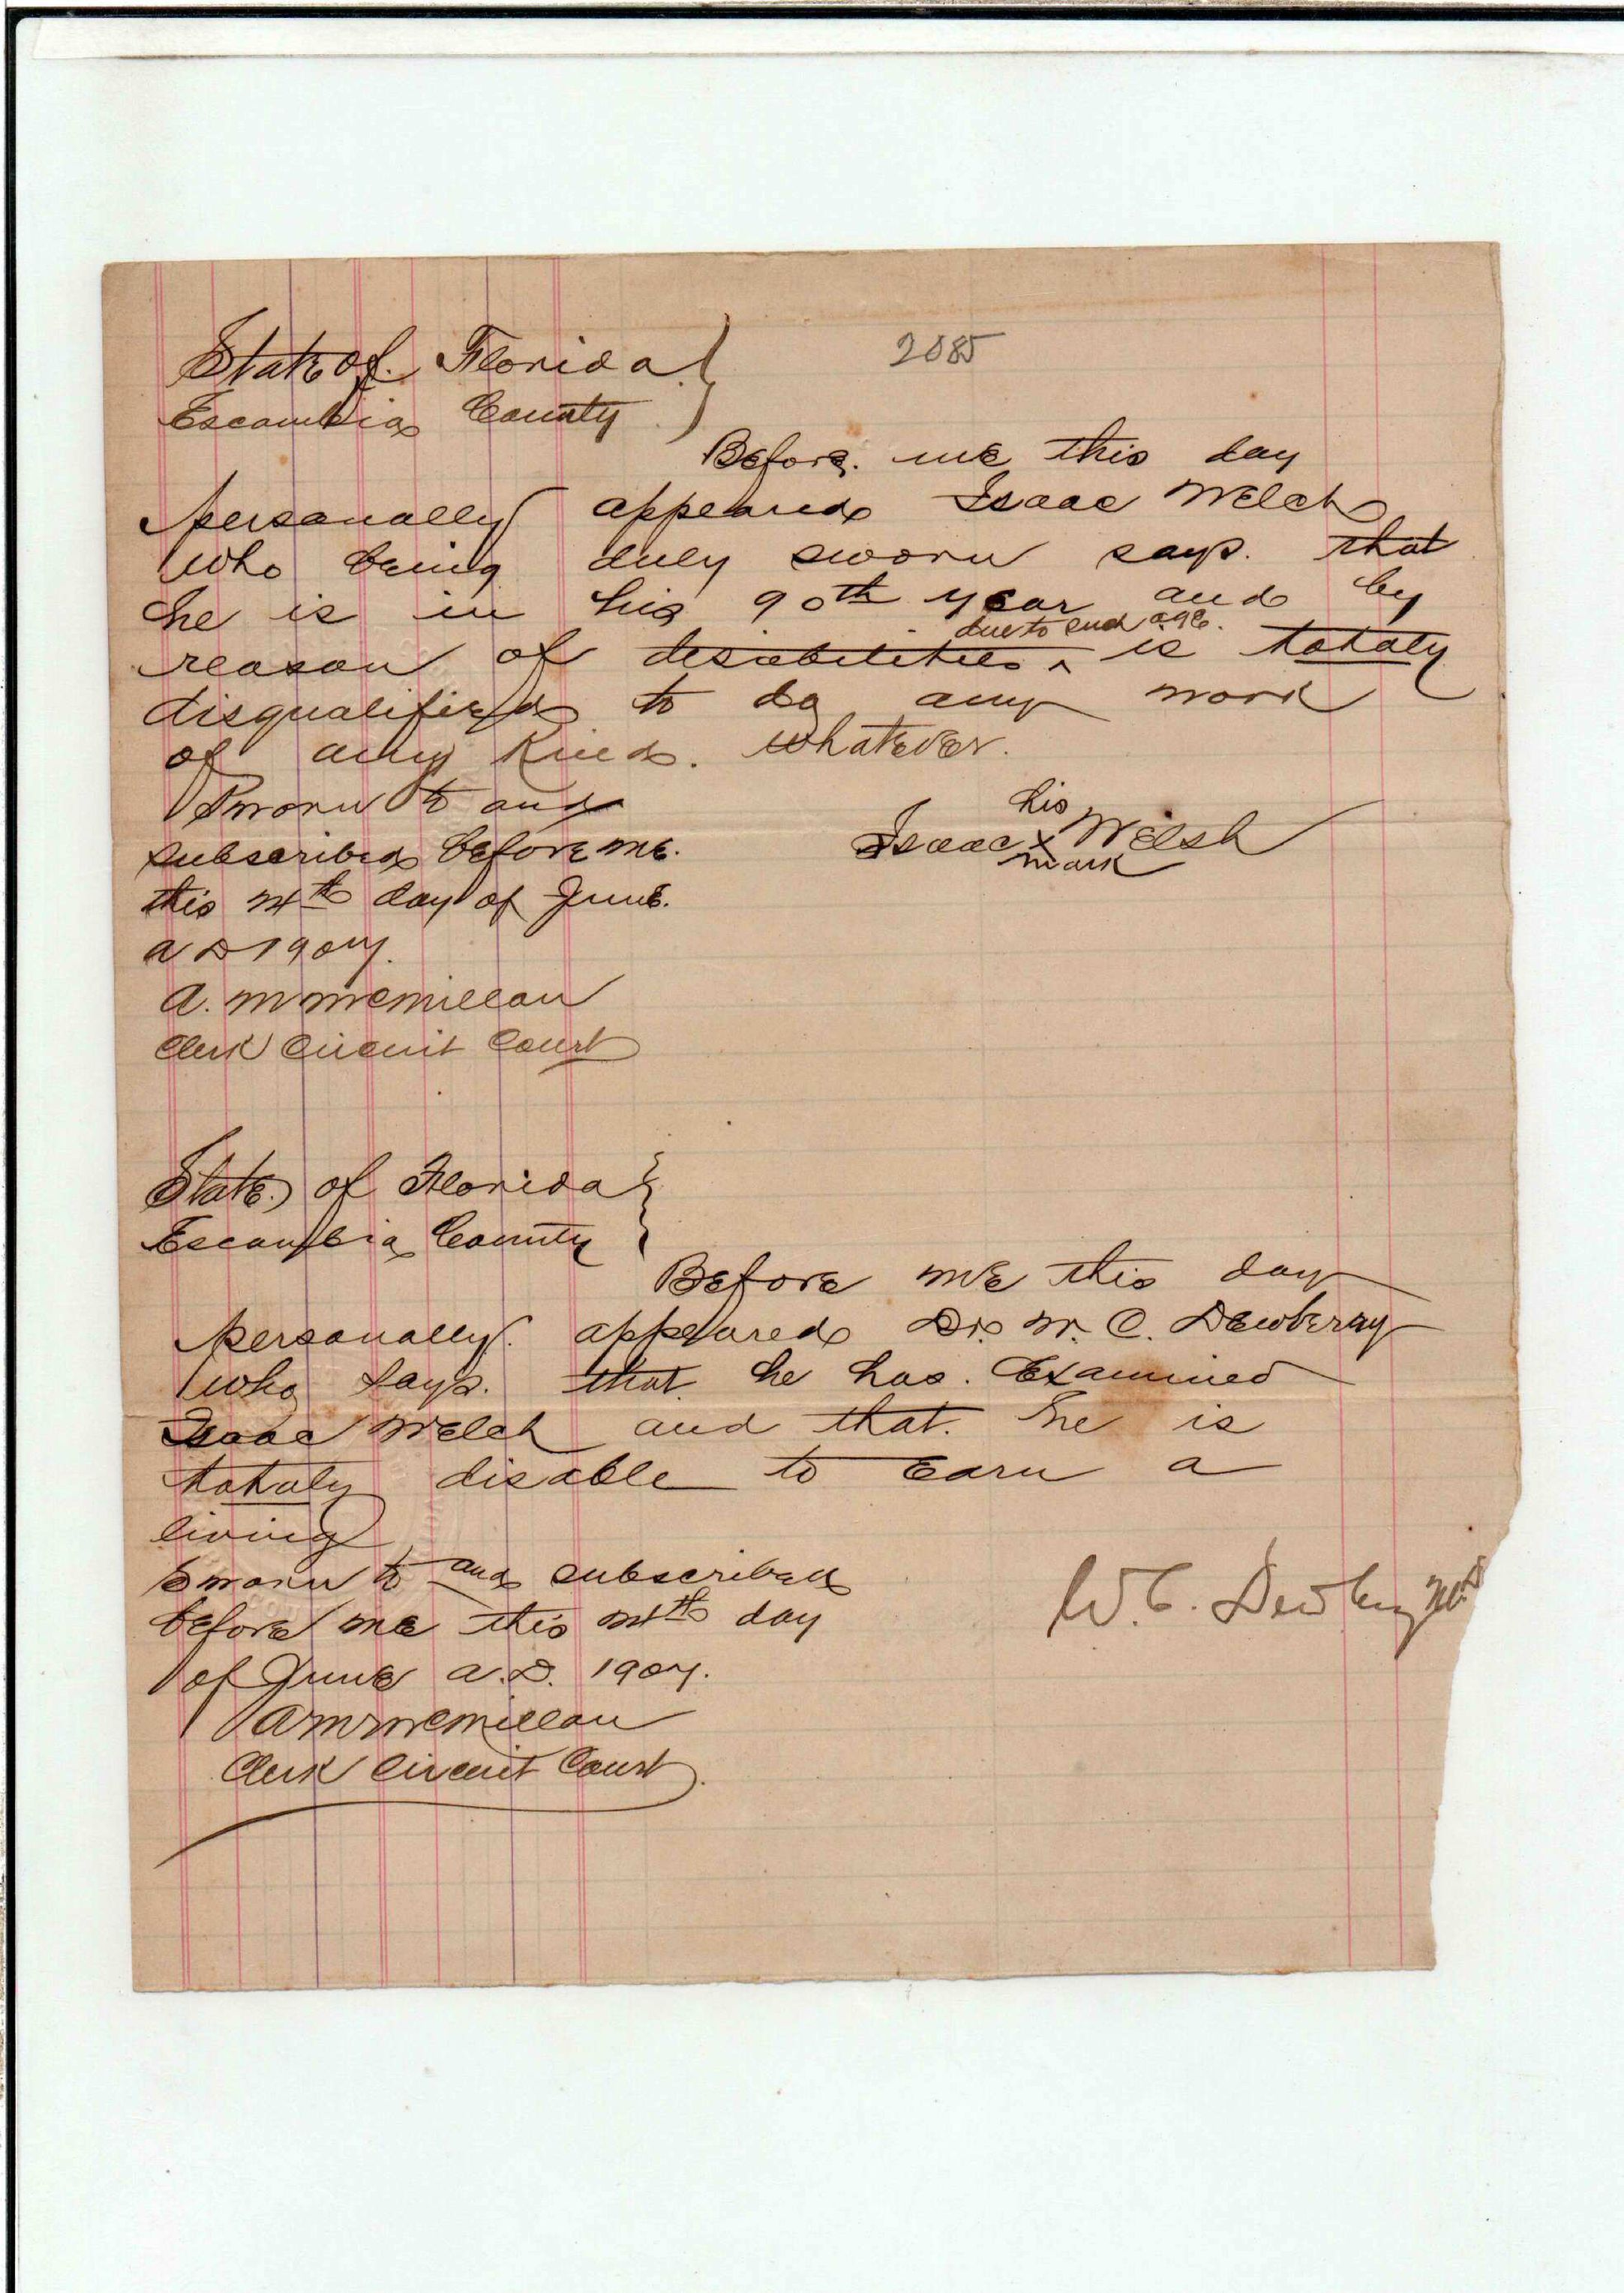 State of Florida
2085
Escambia County
Before me this day
personally appeared Isaac Welch
who being duly sworn says that
he is in his 90th year and by
due to such age.
reason of disabilities ^ is totaly
disqualified to do any work
of any kind. whatever.
Sworn to and
subscribed before me.
this 24th day of June.
A D 1907.
his
Isaac x Welsh
mark
A. M McMillan
Clerk Circuit Court
State of Florida
Escambia County
Before me this day
personally appeared Dr. W. C. Dewberry
who says. that he has. Examined
Isaac Welch and that he is
totaly disable to Earn a
living
Sworn to and subscribed
before me this 24th day
of June A.D. 1907.
W. C. Dewberry M.D
A M McMillan
Clerk Circuit Court.